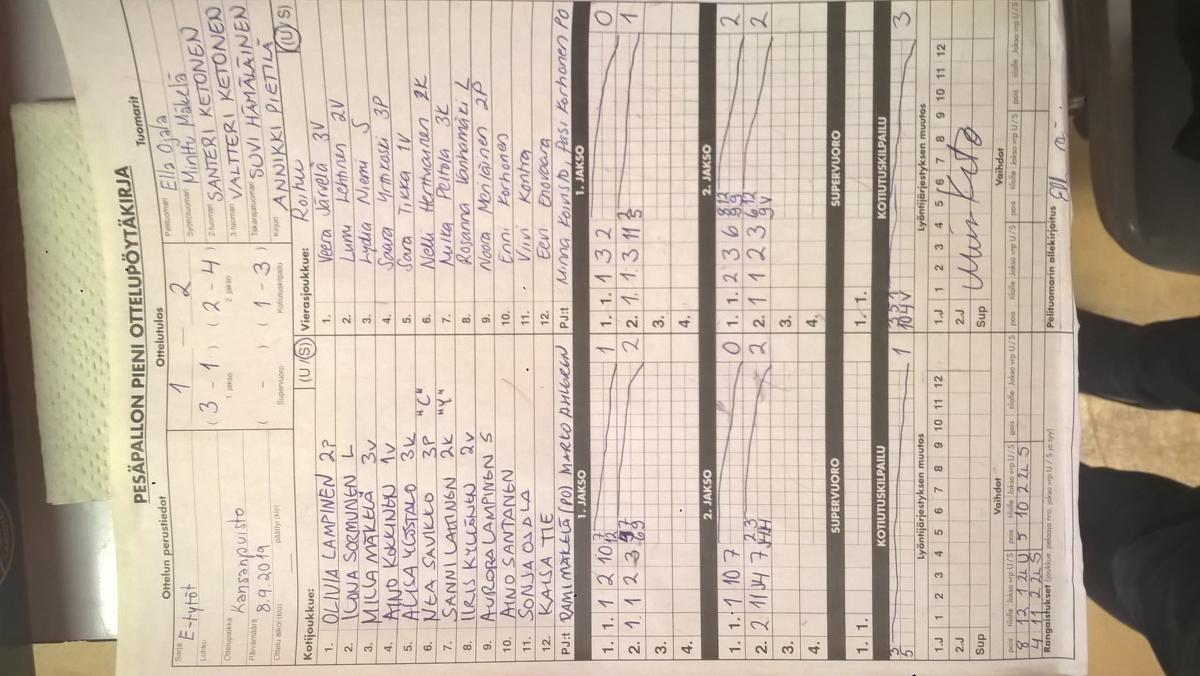 PESÄPALLON PIENI OTTELUPÖYTÄKIRJA
Ottelun perustiedot
Ottelutulos
Tuomarit
Sarja E-tytöt
Lohko
Ottelupaikka Kansanpuisto
Päivämäärä 8.9.2019
Ottelu alkoi (klo) päättyi (klo)
1 - 2
( 3 - 1 ) ( 2 - 4 )
1. jakso 2. jakso
( - ) ( 1 - 3 )
Supervuoro Kotiutuskilpailu
Pelituomari Ella Ojala
Syöttötuomari Minttu Mäkelä
2-tuomari SANTERI KETONEN
3-tuomari VALTTERI KETONEN
Takarajatuomari SUVI HÄMÄLÄINEN
Kirjuri ANNIKKI PIETILÄ
Kotijoukkue: (U/S)
1. OLIVIA LAMPINEN 2P
2. ILONA SORMUNEN L
3. MILLA MÄKELÄ 3V
4. AINO KOKKINEN 1V
5. ALISA YLÖSTALO 3K
6. NEA SAVIKKO 3P "C"
7. SANNI LAHTINEN 2K "Y"
8. IIRIS KYLÄNEN 2V
9. AURORA LAMPINEN S
10. AINO SANTANEN
11. SONJA OJALA
12. KAISA TIE
PJ:t RAMI MÄKELÄ (PO) MARKO AHLGREN
Vierasjoukkue: Roihu (U/S)
1. Veera Järvelä 3V
2. Lumi Lehtinen 2V
3. Lydia Niemi S
4. Saara Yrttikoski 3P
5. Sara Tikka 1V
6. Nelli Herttuainen 2K
7. Milka Peltola 3K
8. Rosanna Vanhamäki L
9. Noora Moilanen 2P
10. Enni Korhonen
11. Viivi Kontra
12. Eevi Enovaara
PJ:t Minna Koivisto, Pasi Korhonen PO
1. JAKSO
1. 1. 1 2 10 7 1
2. 1. 1 2 3 2
3.
4.
1. JAKSO
1. 1. 1 3 2 0
2. 1. 1 3 11 1
3.
4.
2. JAKSO
1. 1. 1 10 7 0
2. 2 11 4 7 2
3.
4.
2. JAKSO
1. 1. 2 3 6 2
2. 1 1 2 3 2
3.
4.
SUPERVUORO
1. 1.
SUPERVUORO
1. 1.
KOTIUTUSKILPAILU
1
KOTIUTUSKILPAILU
3
Lyöntijärjestyksen muutos
1.J 1 2 3 4 5 6 7 8 9 10 11 12
2.J
Sup
Lyöntijärjestyksen muutos
1.J 1 2 3 4 5 6 7 8 9 10 11 12
2.J
Sup
Vaihdot
pois tilalle Jakso vrp U/S pois tilalle Jakso vrp U/S pois tilalle Jakso vrp U/S
8 12 1 2L U 5 10 2 2L S
4 11 2 2L S
Vaihdot
pois tilalle Jakso vrp U/S pois tilalle Jakso vrp U/S pois tilalle Jakso vrp U/S
Rangaistukset (joukkue, pelaaja nro, jakso vrp U/S ja syy)
Pelituomarin allekirjoitus